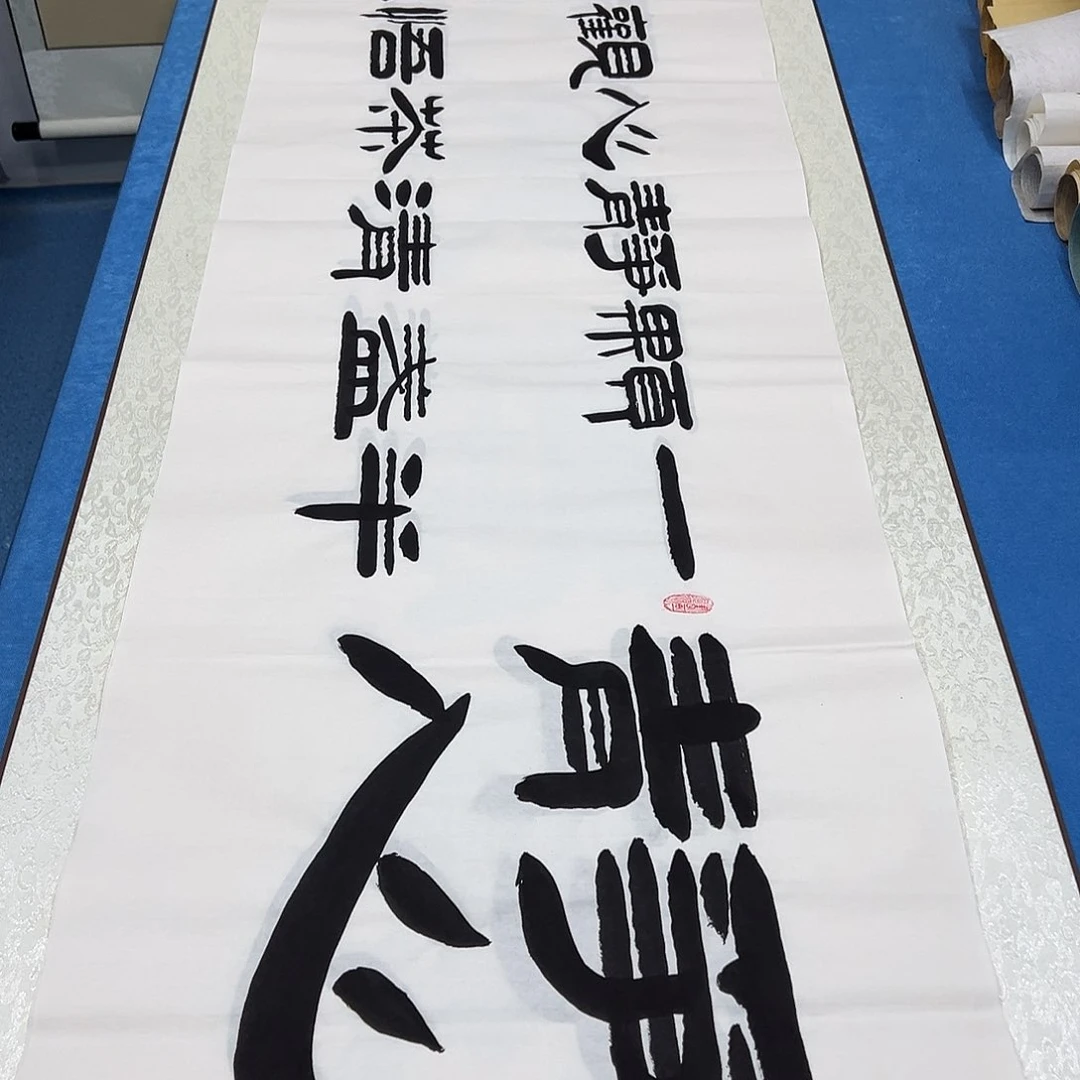 靜心
一顆靜心觀
半盞清茶悟